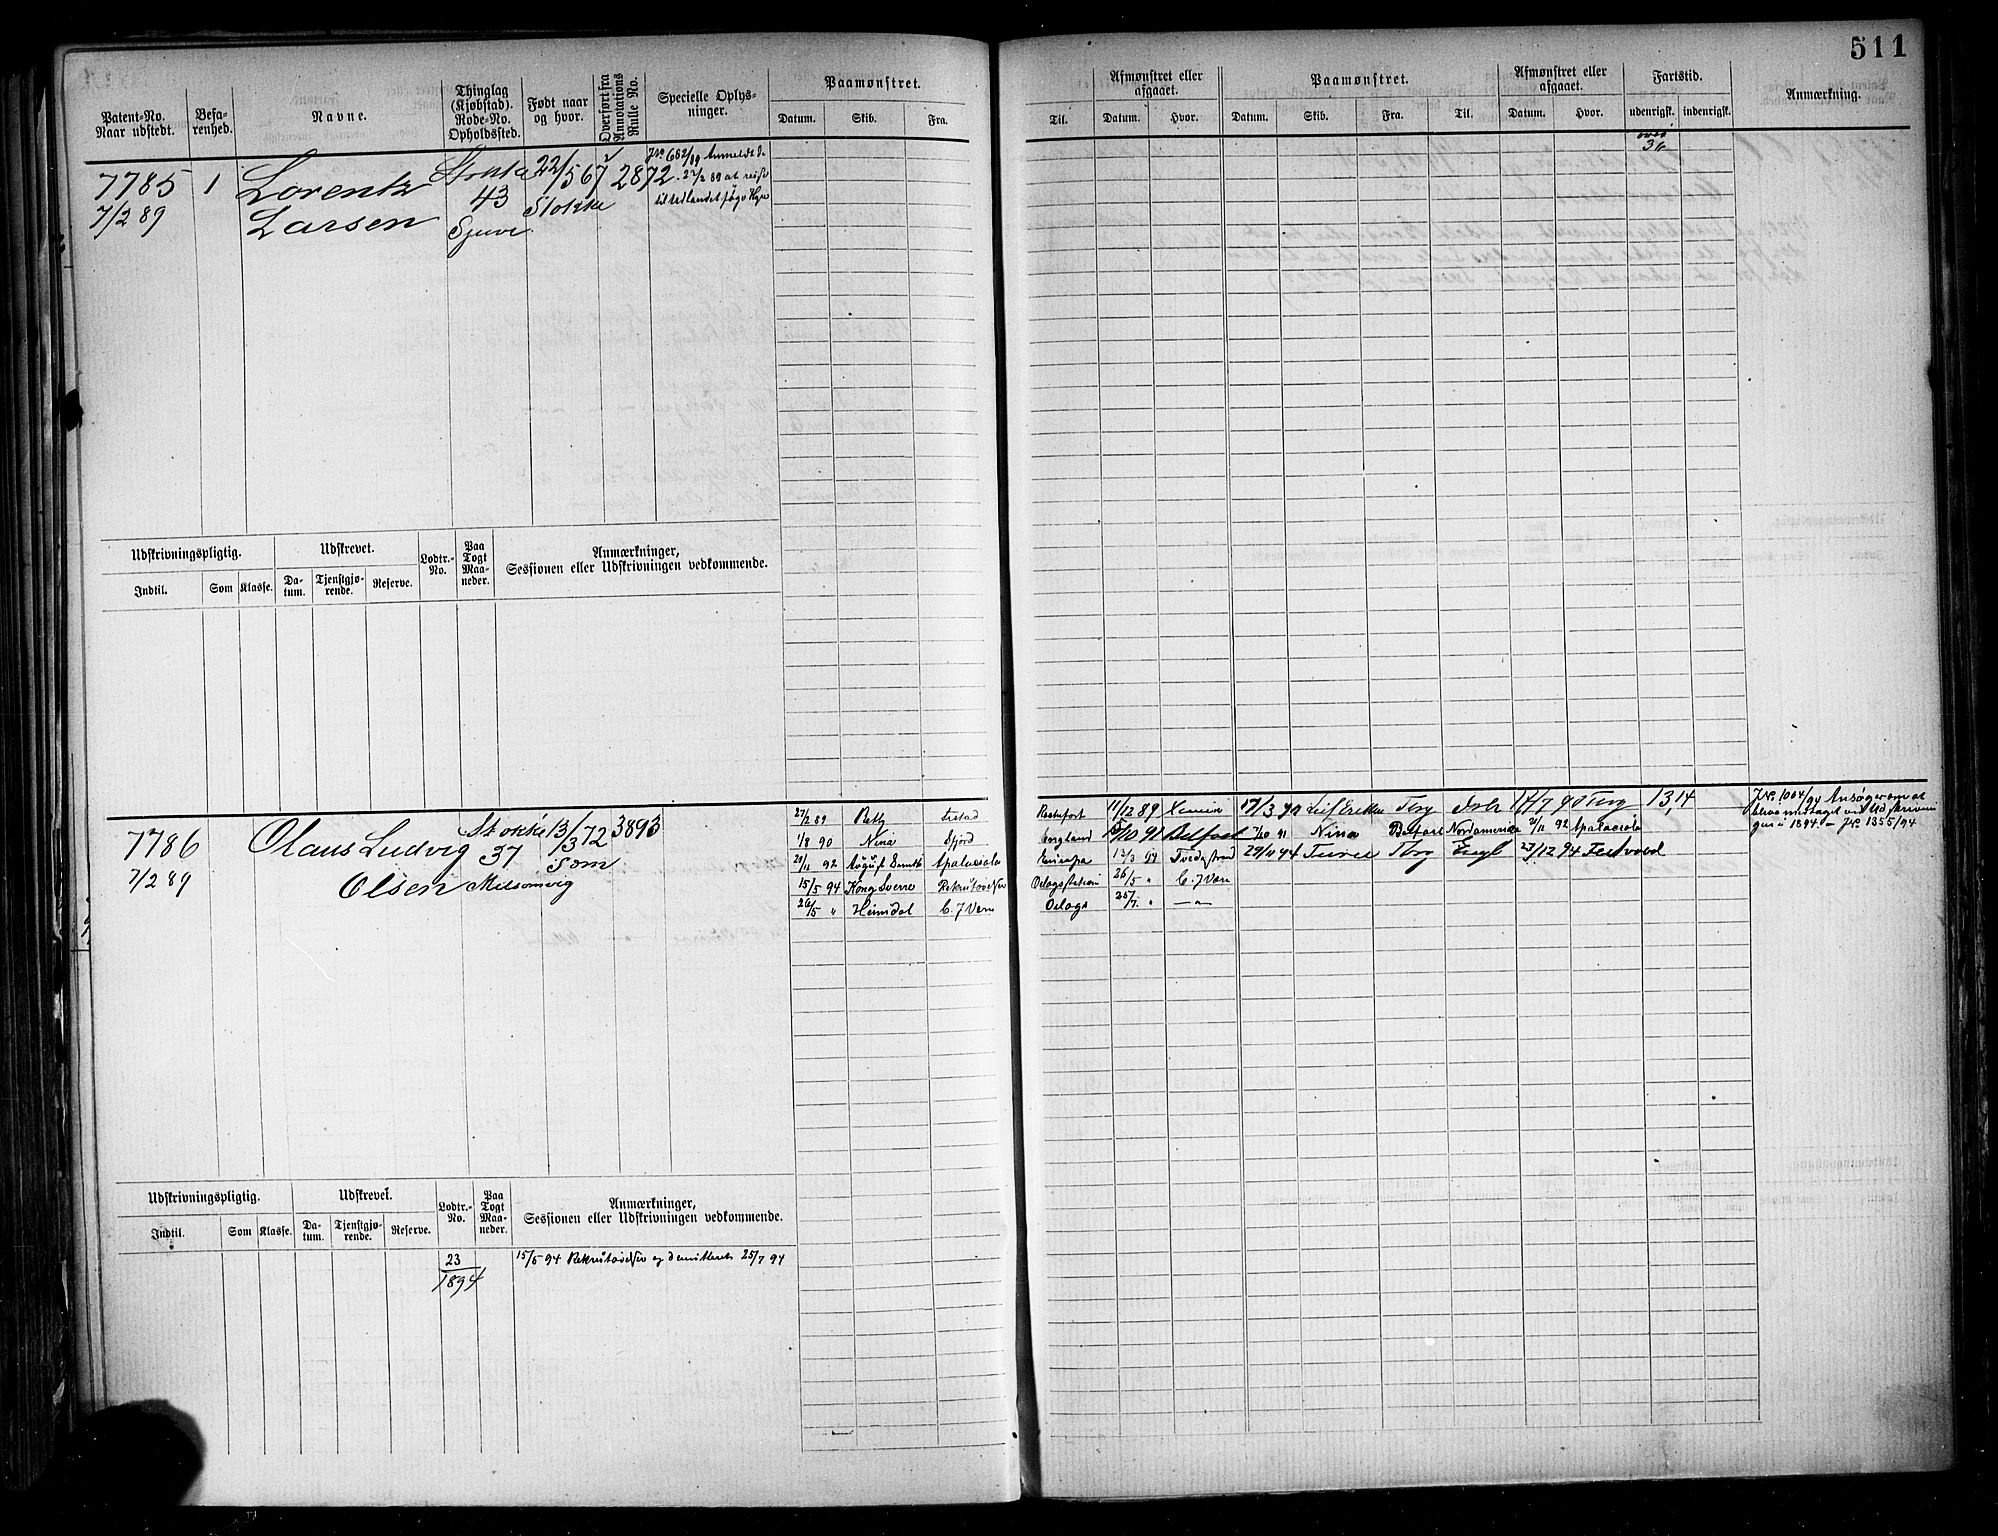 511
Patent-No. Naar udstedt.
Befarenhed.
Navne.
Thinglag (Kjøbstad). Rode-No. Opholdssted.
Født naar og hvor.
Overført fra Annotations Rulle No.
Specielle Oplysninger.
Paamønstret.
Datum. Skib. Fra.
Til.
Afmønstret eller afgaaet.
Datum. Hvor.
Paamønstret.
Datum. Skib. Fra. Til.
Afmønstret eller afgaaet.
Datum. Hvor.
Fartstid.
udenrigsk. indenrigsk.
Anmærkning.
7785 1 Lorentz Stokke 22/5 67 2872
7/2 89 Larsen 43 Stokke
Jno 662/89 Anmeldt d.
27/2 89 at reise
til Udlandet
over
36
Udskrivningspligtig.
Indtil. Som Klasse.
Udskrevet.
Datum. Tjenstgjørende. Reserve.
Lodtr.-No.
Paa Togt Maaneder.
Anmærkninger, Sessionen eller Udskrivningen vedkommende.
7786 Olaus Ludvig Stokke 13/3 72 3893
7/2 89 Olsen 37 Som
Melsomvig
27/2 89 Betty Rochefort 11/12 89
1/8 90 Nina Fjord 10 91 Belfast
21/11 92 August Smith Apalacicola Europa 13/3 94 Tvedestrand
15/5 94 Kong Sverre Rekrutøvelse Oslogstation 26/5 " C. J Værn
26/5 " Heimdal C. J Værn 25/7 " — " —
17/3 90 Leif Erikson Tbrg 14/7 90 Tbrg 13,14
7/10 91 Nina Belfast Nordamerica 21/11 92 Apalacicola
29/11 94 Tbrg Engl 23/12 94
Jno 1004/94 Ansøger om at
blive medtagt ved Udskrivnin
gen i 1894. — Jno 1355/94
Udskrivningspligtig.
Indtil. Som Klasse.
Udskrevet.
Datum. Tjenstgjørende. Reserve.
Lodtr.-No.
Paa Togt Maaneder.
Anmærkninger, Sessionen eller Udskrivningen vedkommende.
23
1894
15/5 94 Rekrutøvelse og demitteret 25/7 94